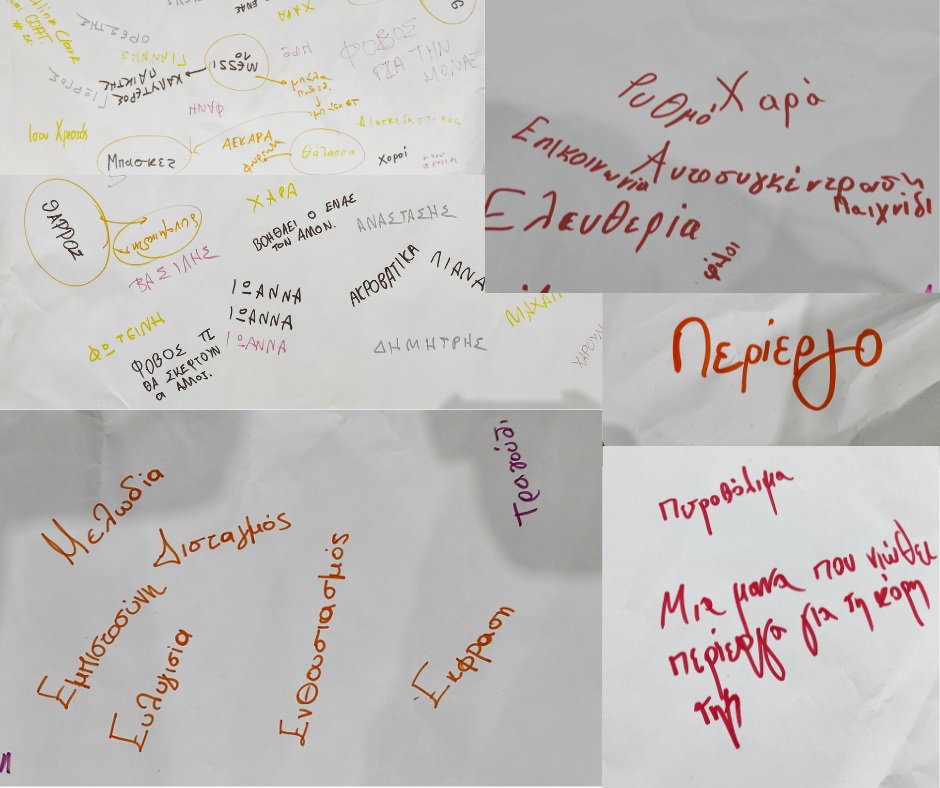 ΧΑΡΑ
ΟΡΕΣΤΗΣ
# GOAT
ΓΙΑΝΝΗΣ
MESSI
10
ΗΡΩ
ΦΟΒΟΣ
ΓΙΑ ΤΗΝ
ΓΙΩΡΓΟΣ
ΚΑΛΥΤΕΡΟΣ
ΠΑΙΚΤΗΣ
ΦΑΝΗ
Ισου Χριστός
Μπασκες
ΔΕΚΑΡΑ
Θάλασσα
Διασκεδαστικος
χοροί
ΘΑΡΡΟΣ
ΒΑΣΙΛΗΣ
ΧΑΡΑ
ΒΟΗΘΑΕΙ Ο ΕΝΑΣ
ΤΟΝ ΑΛΛΟΝ.
ΑΝΑΣΤΑΣΗΣ
ΑΚΡΟΒΑΤΙΚΑ
ΛΙΑΝΑ
ΙΩΑΝΝΑ
ΙΩΑΝΝΑ
ΙΩΑΝΝΑ
ΦΩΤΕΙΝΗ
ΦΟΒΟΣ ΤΙ
ΘΑ ΣΚΕΡΤΟΥΝ
ΟΙ ΑΛΛΟΙ.
ΔΗΜΗΤΡΗΣ
Ρυθμό
Χαρά
Επικοινωνία
Αυτοσυγκέντρωση
Παιχνίδι
Ελευθερία
φίλοι
Περίεργο
Μελωδία
Δισταγμός
Τραγούδι
Εμπιστοσύνη
Ευλυγισία
Ενθουσιασμός
Έκφραση
Πυροβόλιμα
Μια μανα που νιώθει
περίεργα για τη κόρη
της